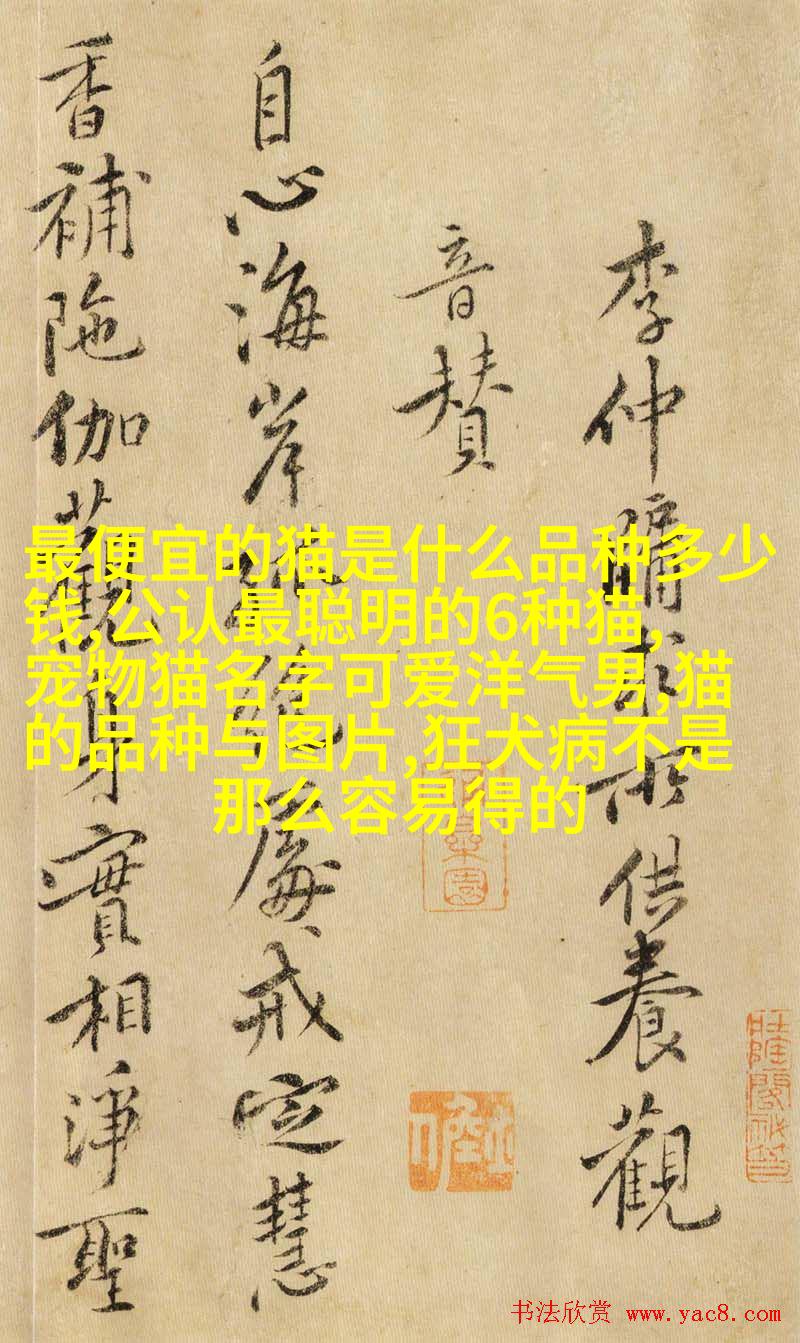 李仲牖求所供養觀
音贊
自心海岸孤絕處戒定慧
香補陁伽觀身實相淨聖
最便宜的猫是什么品种多少
钱,公认最聪明的6种猫,
宠物猫名字可爱洋气男,猫
的品种与图片,狂犬病不是
那么容易得的
书法欣赏 www.yac8.com